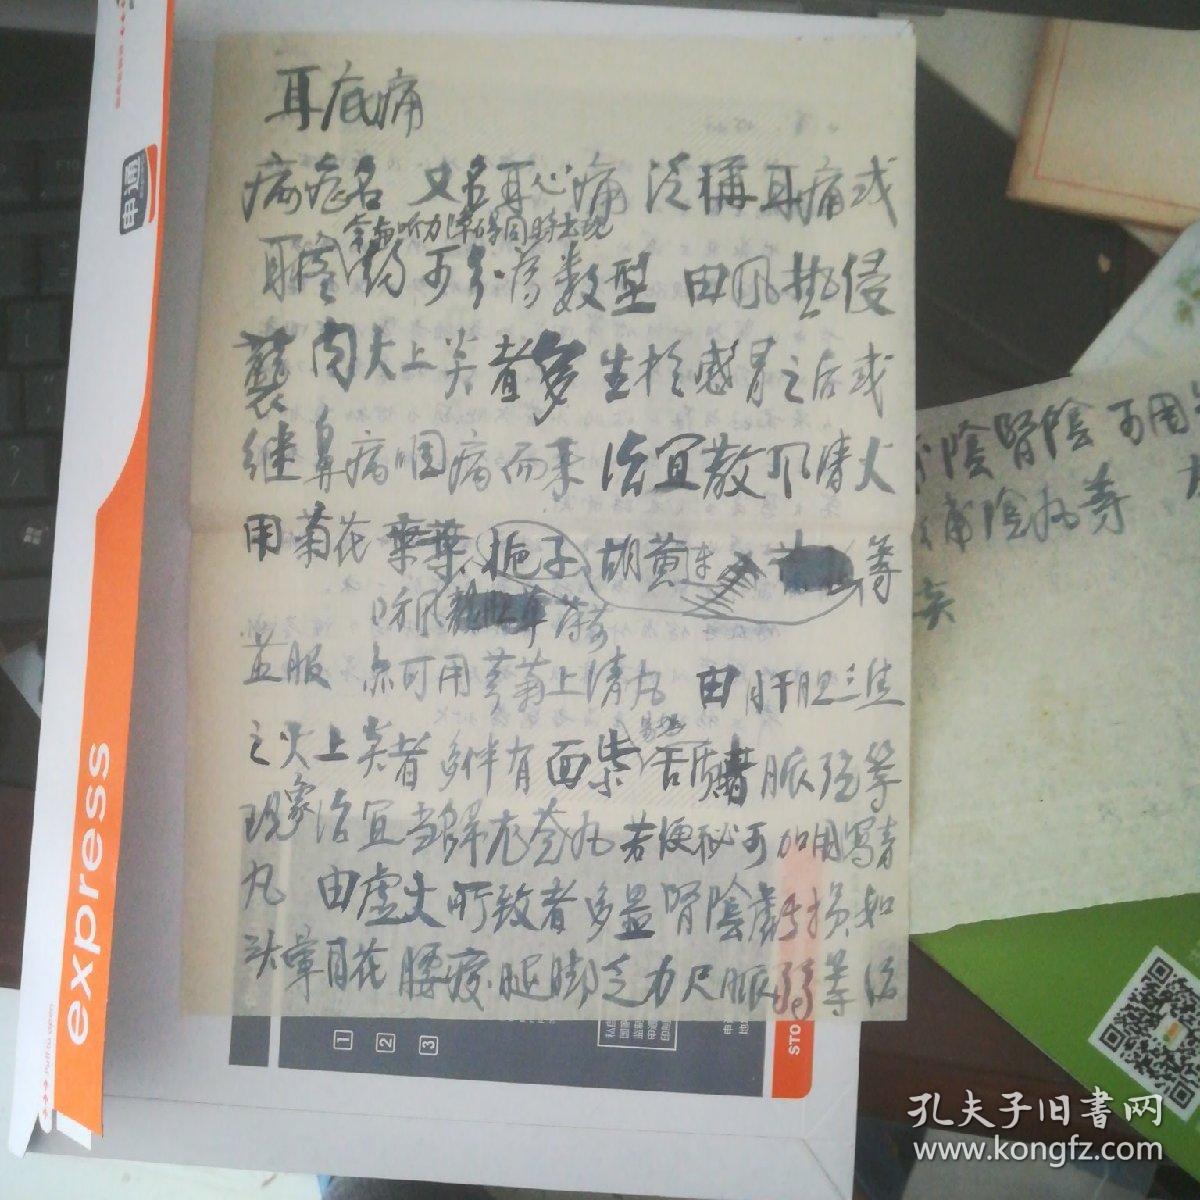 耳底痛
病症名 又名耳心痛 泛稱耳痛或
常與听力障碍同時出现
耳疼 可分為数型 由风热侵
襲 内火上炎者多生於感冒之后或
继鼻病咽病而来 治宜散风清火
用菊花 栀子 胡黄连 等
防风 龍胆草 薄荷
益服 亦可用 菊上清丸 由肝胆三焦
之火上炎者 多伴有面 舌质 脈弦等
现象 治宜当归龙荟丸 若便秘可加用
丸 由虚火所致者多显肾陰虧损如
头晕目花 腰痠腿脚乏力尺脈弱等 治
陰腎陰 可用
補陰丸等
炎
申通
express
pull to open
1
2
3
STO
孔夫子旧書网
www.kongfz.com